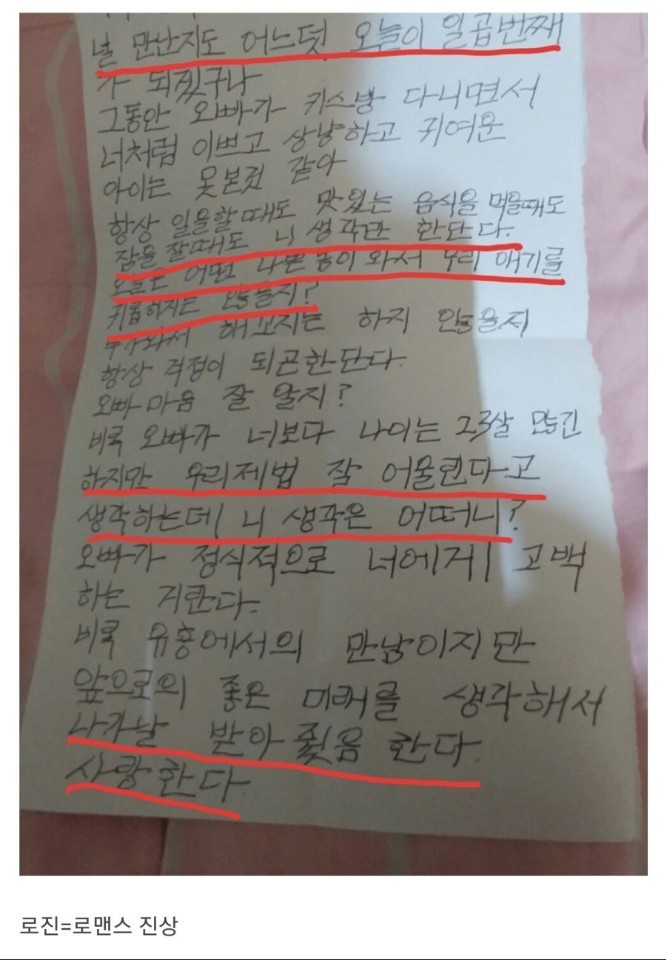 널 만난지도 어느덧 오늘이 일곱번째
가 되겠구나
그동안 오빠가 키스방 다니면서
너처럼 이쁘고 상냥하고 귀여운
아이는 못본것 같아
항상 일을할때도 맛있는 음식을 먹을때도
잠을 잘때도 니 생각만 한단다.
오늘은 어떤 나쁜놈이 와서 우리 애기를
않을지?
와서 해꼬지는 하지 않을지
항상 걱정이 되곤한단다.
오빠마음 잘 알지?
비록 오빠가 너보다 나이는 23살 많긴
하지만 우리제법 잘 어울린다고
생각하는데 니 생각은 어떠니?
오빠가 정식적으로 너에게 고백
하는 거란다.
비록 유흥에서의 만남이지만
앞으로의 좋은 미래를 생각해서
니가날 받아줬음 한다.
사랑한다.
로진=로맨스 진상